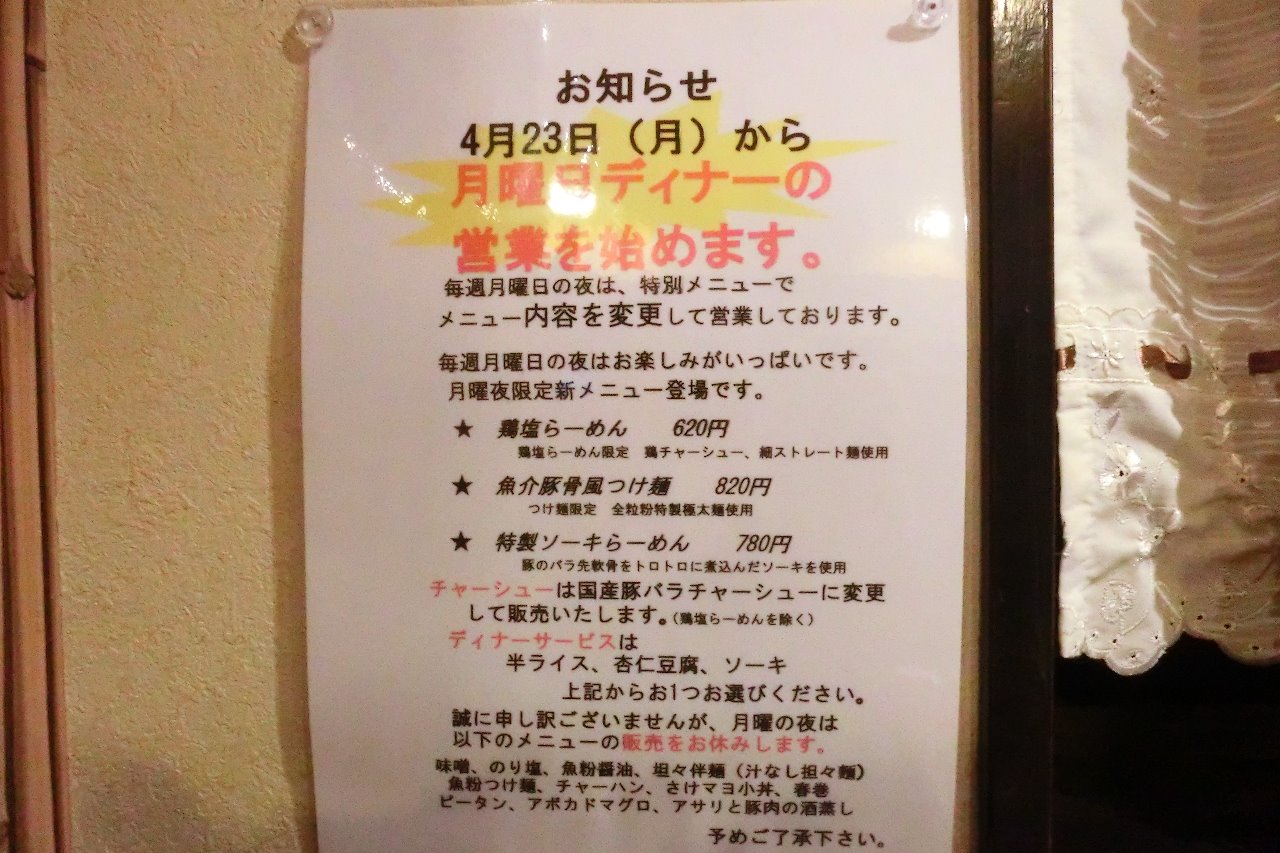 お知らせ
4月23日（月）から
月曜日ディナーの
営業を始めます。
毎週月曜日の夜は、特別メニューで
メニュー内容を変更して営業しております。
毎週月曜日の夜はお楽しみがいっぱいです。
月曜夜限定新メニュー登場です。
★ 鶏塩らーめん 620円
鶏塩らーめん限定 鶏チャーシュー、細ストレート麺使用
★ 魚介豚骨風つけ麺 820円
つけ麺限定 全粒粉特製極太麺使用
★ 特製ソーキらーめん 780円
豚のバラ先軟骨をトロトロに煮込んだソーキを使用
チャーシューは国産豚バラチャーシューに変更
して販売いたします。（鶏塩らーめんを除く）
ディナーサービスは
半ライス、杏仁豆腐、ソーキ
上記からお1つお選びください。
誠に申し訳ございませんが、月曜の夜は
以下のメニューの販売をお休みします。
味噌、のり塩、魚粉醤油、坦々伴麺（汁なし担々麺）
魚粉つけ麺、チャーハン、さけマヨ小丼、春巻
ピータン、アボカドマグロ、アサリと豚肉の酒蒸し
予めご了承下さい。